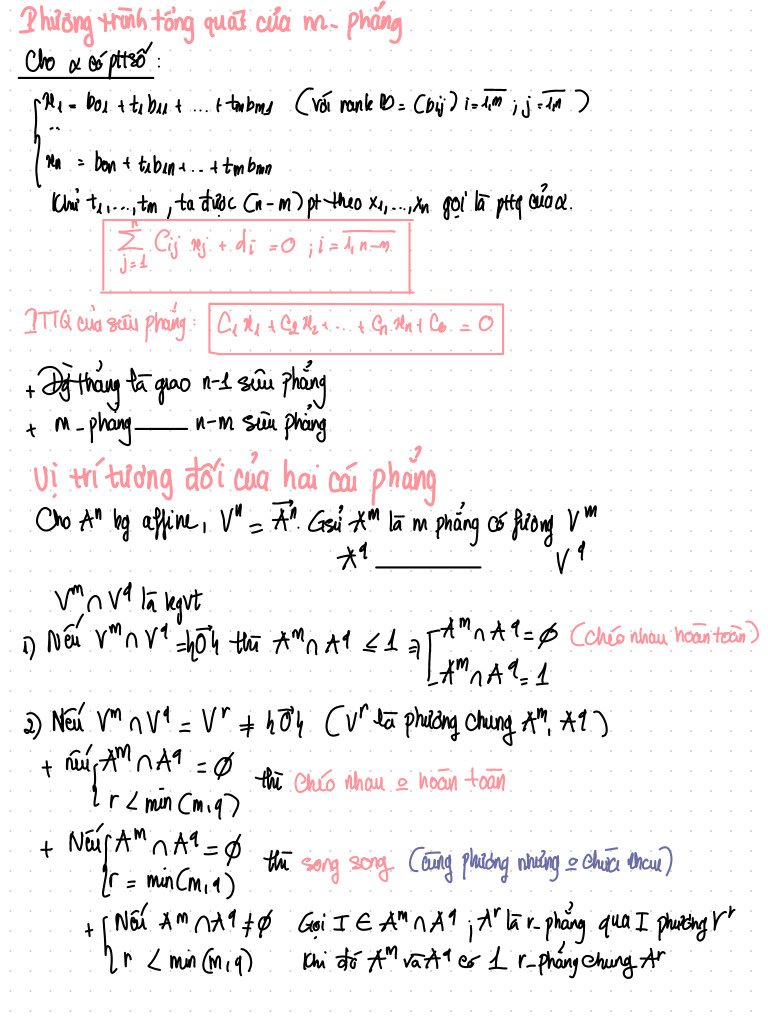 Phương trình tổng quát của m-phẳng
Cho α có ptts số:
x₁ = b₀₁ + t₁b₁₁ + ... + tₘbₘ₁ (với rank B = (bij) i = 1,m ; j = 1,n)
..
xₙ = b₀ₙ + t₁b₁ₙ + .. + tₘbₘₙ
Khử t₁,...,tₘ, ta được (n-m) pt theo x₁,...,xₙ gọi là pttq của α.
∑ⁿⱼ₌₁ Cij xj + di = 0 ; i = 1, n-m
PTTQ của siêu phẳng: C₁x₁ + C₂x₂ + ... + Cₙxₙ + C₀ = 0
+ Đg thẳng là giao n-1 siêu phẳng
+ m-phẳng ——— n-m siêu phẳng
Vị trí tương đối của hai cái phẳng
Cho Aⁿ kg affine, Vⁿ = Aⁿ. Gsử Aᵐ là m phẳng có phương Vᵐ
A^q ——— V^q
Vᵐ ∩ V^q là kgvt
1) Nếu Vᵐ ∩ V^q = {0} thì Aᵐ ∩ A^q ≤ 1 ⇒ [ Aᵐ ∩ A^q = ∅ (chéo nhau hoàn toàn)
Aᵐ ∩ A^q = 1
2) Nếu Vᵐ ∩ V^q = Vʳ ≠ {0} (Vʳ là phương chung Aᵐ, A^q)
+ nếu { Aᵐ ∩ A^q = ∅ thì chéo nhau o hoàn toàn
r < min(m,q)
+ Nếu { Aᵐ ∩ A^q = ∅ thì song song (cùng phương nhưng o chứa nhau)
r = min(m,q)
+ { Nếu Aᵐ ∩ A^q ≠ ∅ Gọi I ∈ Aᵐ ∩ A^q ; Aʳ là r-phẳng qua I phương Vʳ
r < min(m,q) Khi đó Aᵐ và A^q có 1 r-phẳng chung Aʳ